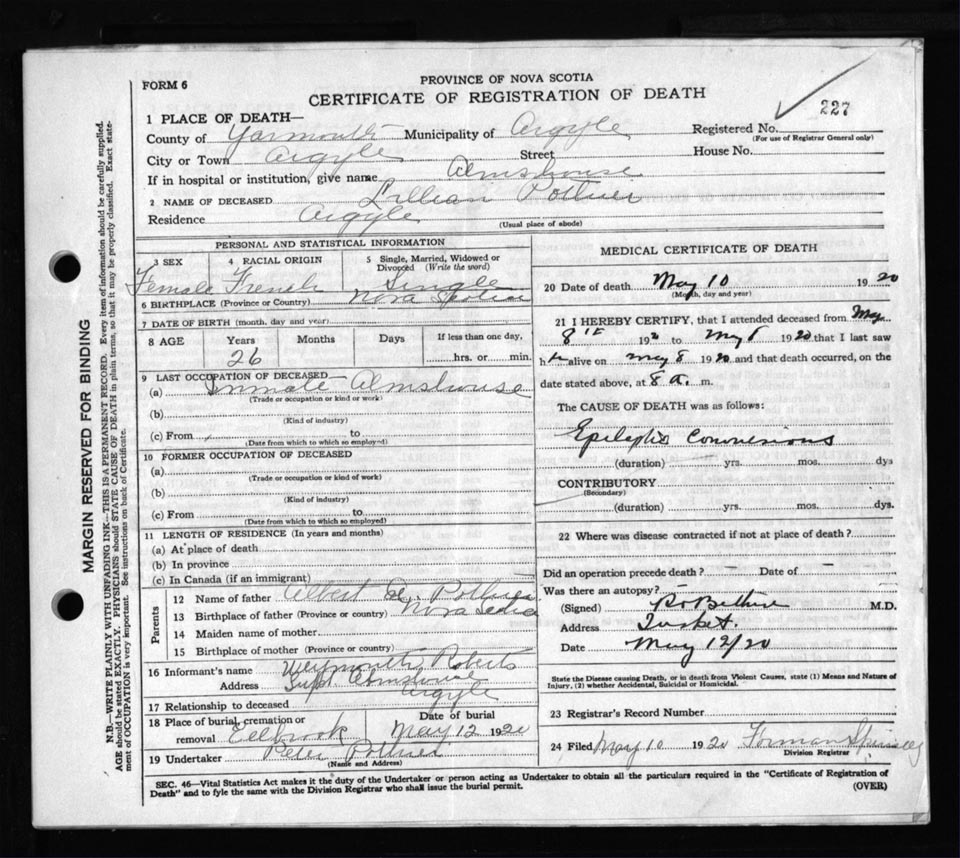 FORM 6
PROVINCE OF NOVA SCOTIA
CERTIFICATE OF REGISTRATION OF DEATH
227
1 PLACE OF DEATH—
County of Yarmouth Municipality of Argyle Registered No.
(For use of Registrar General only)
City or Town Argyle Street House No.
If in hospital or institution, give name Almshouse
2 NAME OF DECEASED Lillian Pottier
Residence Argyle
(Usual place of abode)
PERSONAL AND STATISTICAL INFORMATION
3 SEX 4 RACIAL ORIGIN 5 Single, Married, Widowed or Divorced (Write the word)
Female French Single
6 BIRTHPLACE (Province or Country) Nova Scotia
7 DATE OF BIRTH (month, day and year)
8 AGE Years Months Days If less than one day,
26 hrs. or min.
9 LAST OCCUPATION OF DECEASED—
(a) Inmate Almshouse
(Trade or occupation or kind or work)
(b)
(Kind of industry)
(c) From to
(Date from which to which so employed)
10 FORMER OCCUPATION OF DECEASED
(a)
(Trade or occupation or kind of work)
(b)
(Kind of industry)
(c) From to
(Date from which to which so employed)
11 LENGTH OF RESIDENCE (In years and months)
(a) At place of death
(b) In province
(c) In Canada (if an immigrant)
Parents
12 Name of father Albert Pottier
13 Birthplace of father (Province or country) Nova Scotia
14 Maiden name of mother
15 Birthplace of mother (Province or country)
16 Informant's name Weymouth Roberts
Address Supt Almshouse
Argyle
17 Relationship to deceased
18 Place of burial, cremation or removal Eelbrook Date of burial May 12 1920
19 Undertaker Peter Pottier
(Name and Address)
MEDICAL CERTIFICATE OF DEATH
20 Date of death May 10 1920
(Month, day and year)
21 I HEREBY CERTIFY, that I attended deceased from May
8th 192 to May 8 1920 that I last saw
h er alive on May 8 1920 and that death occurred, on the
date stated above, at 8 a. m.
The CAUSE OF DEATH was as follows:
Epileptic Convulsions
(duration) yrs. mos. dys
CONTRIBUTORY
(Secondary)
(duration) yrs. mos. dys.
22 Where was disease contracted if not at place of death?
Did an operation precede death? — Date of —
Was there an autopsy?
(Signed) M.D.
Address Tusket.
Date May 12/20
State the Disease causing Death, or in death from Violent Causes, state (1) Means and Nature of
Injury, (2) whether Accidental, Suicidal or Homicidal.
23 Registrar's Record Number
24 Filed May 10 1920 Forman Spinney
Division Registrar
SEC. 46—Vital Statistics Act makes it the duty of the Undertaker or person acting as Undertaker to obtain all the particulars required in the "Certificate of Registration of
Death" and to fyle the same with the Division Registrar who shall issue the burial permit.
(OVER)
MARGIN RESERVED FOR BINDING
N.B.—WRITE PLAINLY WITH UNFADING INK—THIS IS A PERMANENT RECORD. Every item of information should be carefully supplied.
AGE should be stated EXACTLY. PHYSICIANS should STATE CAUSE OF DEATH in plain terms, so that it may be properly classified. Exact state-
ment of OCCUPATION is very important. See instructions on back of Certificate.